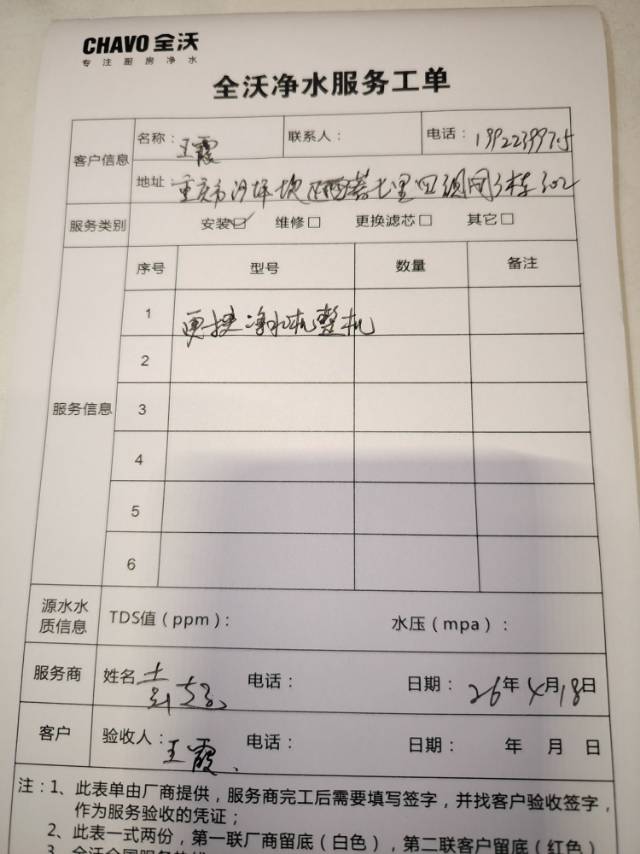 CHAVO 全沃
专注厨房净水
全沃净水服务工单
客户信息
名称：王霞
联系人：
电话：
地址：重庆市沙坪坝
服务类别
安装☑ 维修□ 更换滤芯□ 其它□
服务信息
序号 型号 数量 备注
1 更换净水机整机
2
3
4
5
6
源水水质信息
TDS值（ppm）： 水压（mpa）：
服务商
姓名 电话： 日期：26年4月18日
客户
验收人：王霞 电话： 日期： 年 月 日
注：1、此表单由厂商提供，服务商完工后需要填写签字，并找客户验收签字，
作为服务验收的凭证；
2、此表一式两份，第一联厂商留底（白色），第二联客户留底（红色）